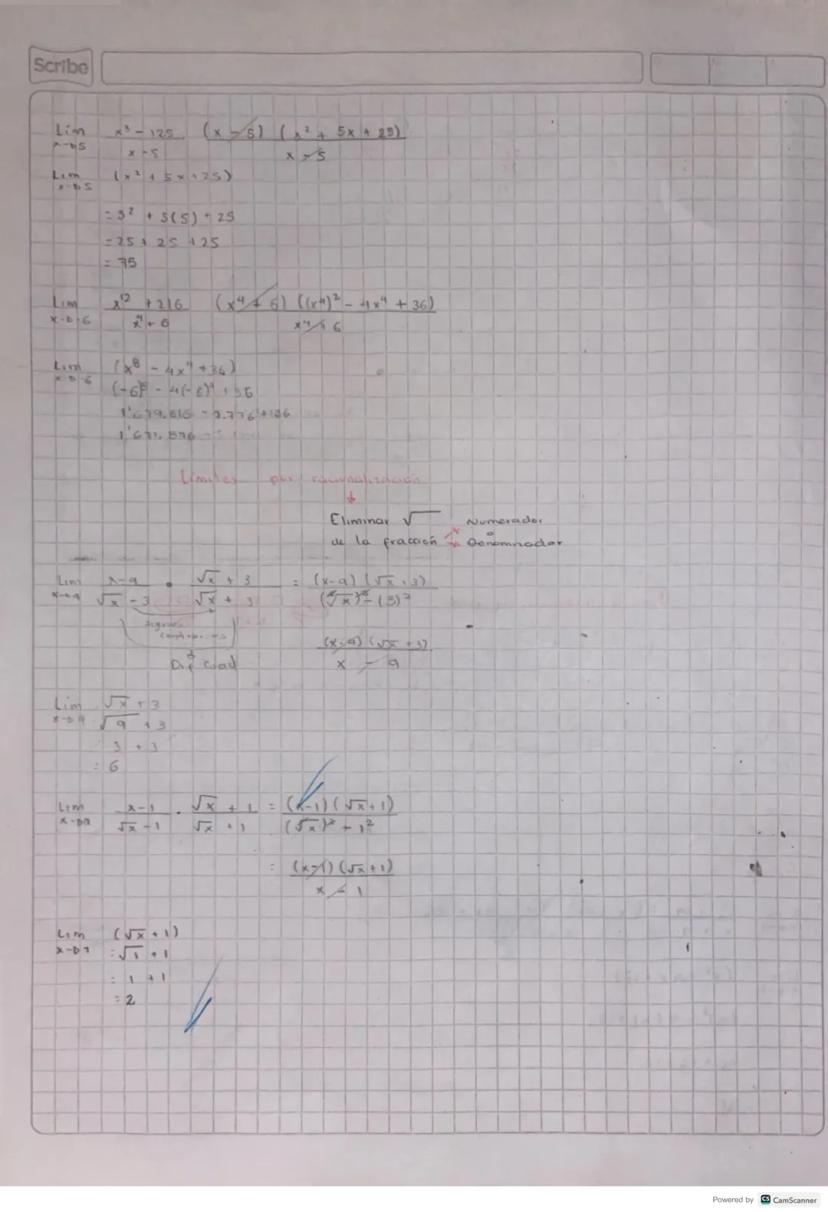 Scribe
Lim x→5 x³ - 125 / x - 5 (x - 5) (x² + 5x + 25) / x - 5
Lim x→5 (x² + 5x + 25)
= 5² + 5(5) + 25
= 25 + 25 + 25
= 75
Lim x→-6 x¹² + 216 / x⁴ + 6 (x⁴ + 6) ((x⁴)² - 4x⁴ + 36) / x⁴ + 6
Lim x→-6 (x⁸ - 4x⁴ + 36)
(-6)⁸ - 4(-6)⁴ + 36
Límites por racionalización
Eliminar √ Numerador
de la fracción o Denominador
Lim x→9 x-9 / √x - 3 • √x + 3 / √x + 3 = (x-9) (√x + 3) / (√x)² - (3)²
signos
(x-9) (√x + 3) / x - 9
Lim x→9 √x + 3
√9 + 3
3 + 3
= 6
Lim x→1 x-1 / √x - 1 · √x + 1 / √x + 1 = (x-1) (√x + 1) / (√x)² - 1²
= (x-1) (√x + 1) / x - 1
Lim x→1 (√x + 1)
= √1 + 1
= 1 + 1
= 2
Powered by CS CamScanner